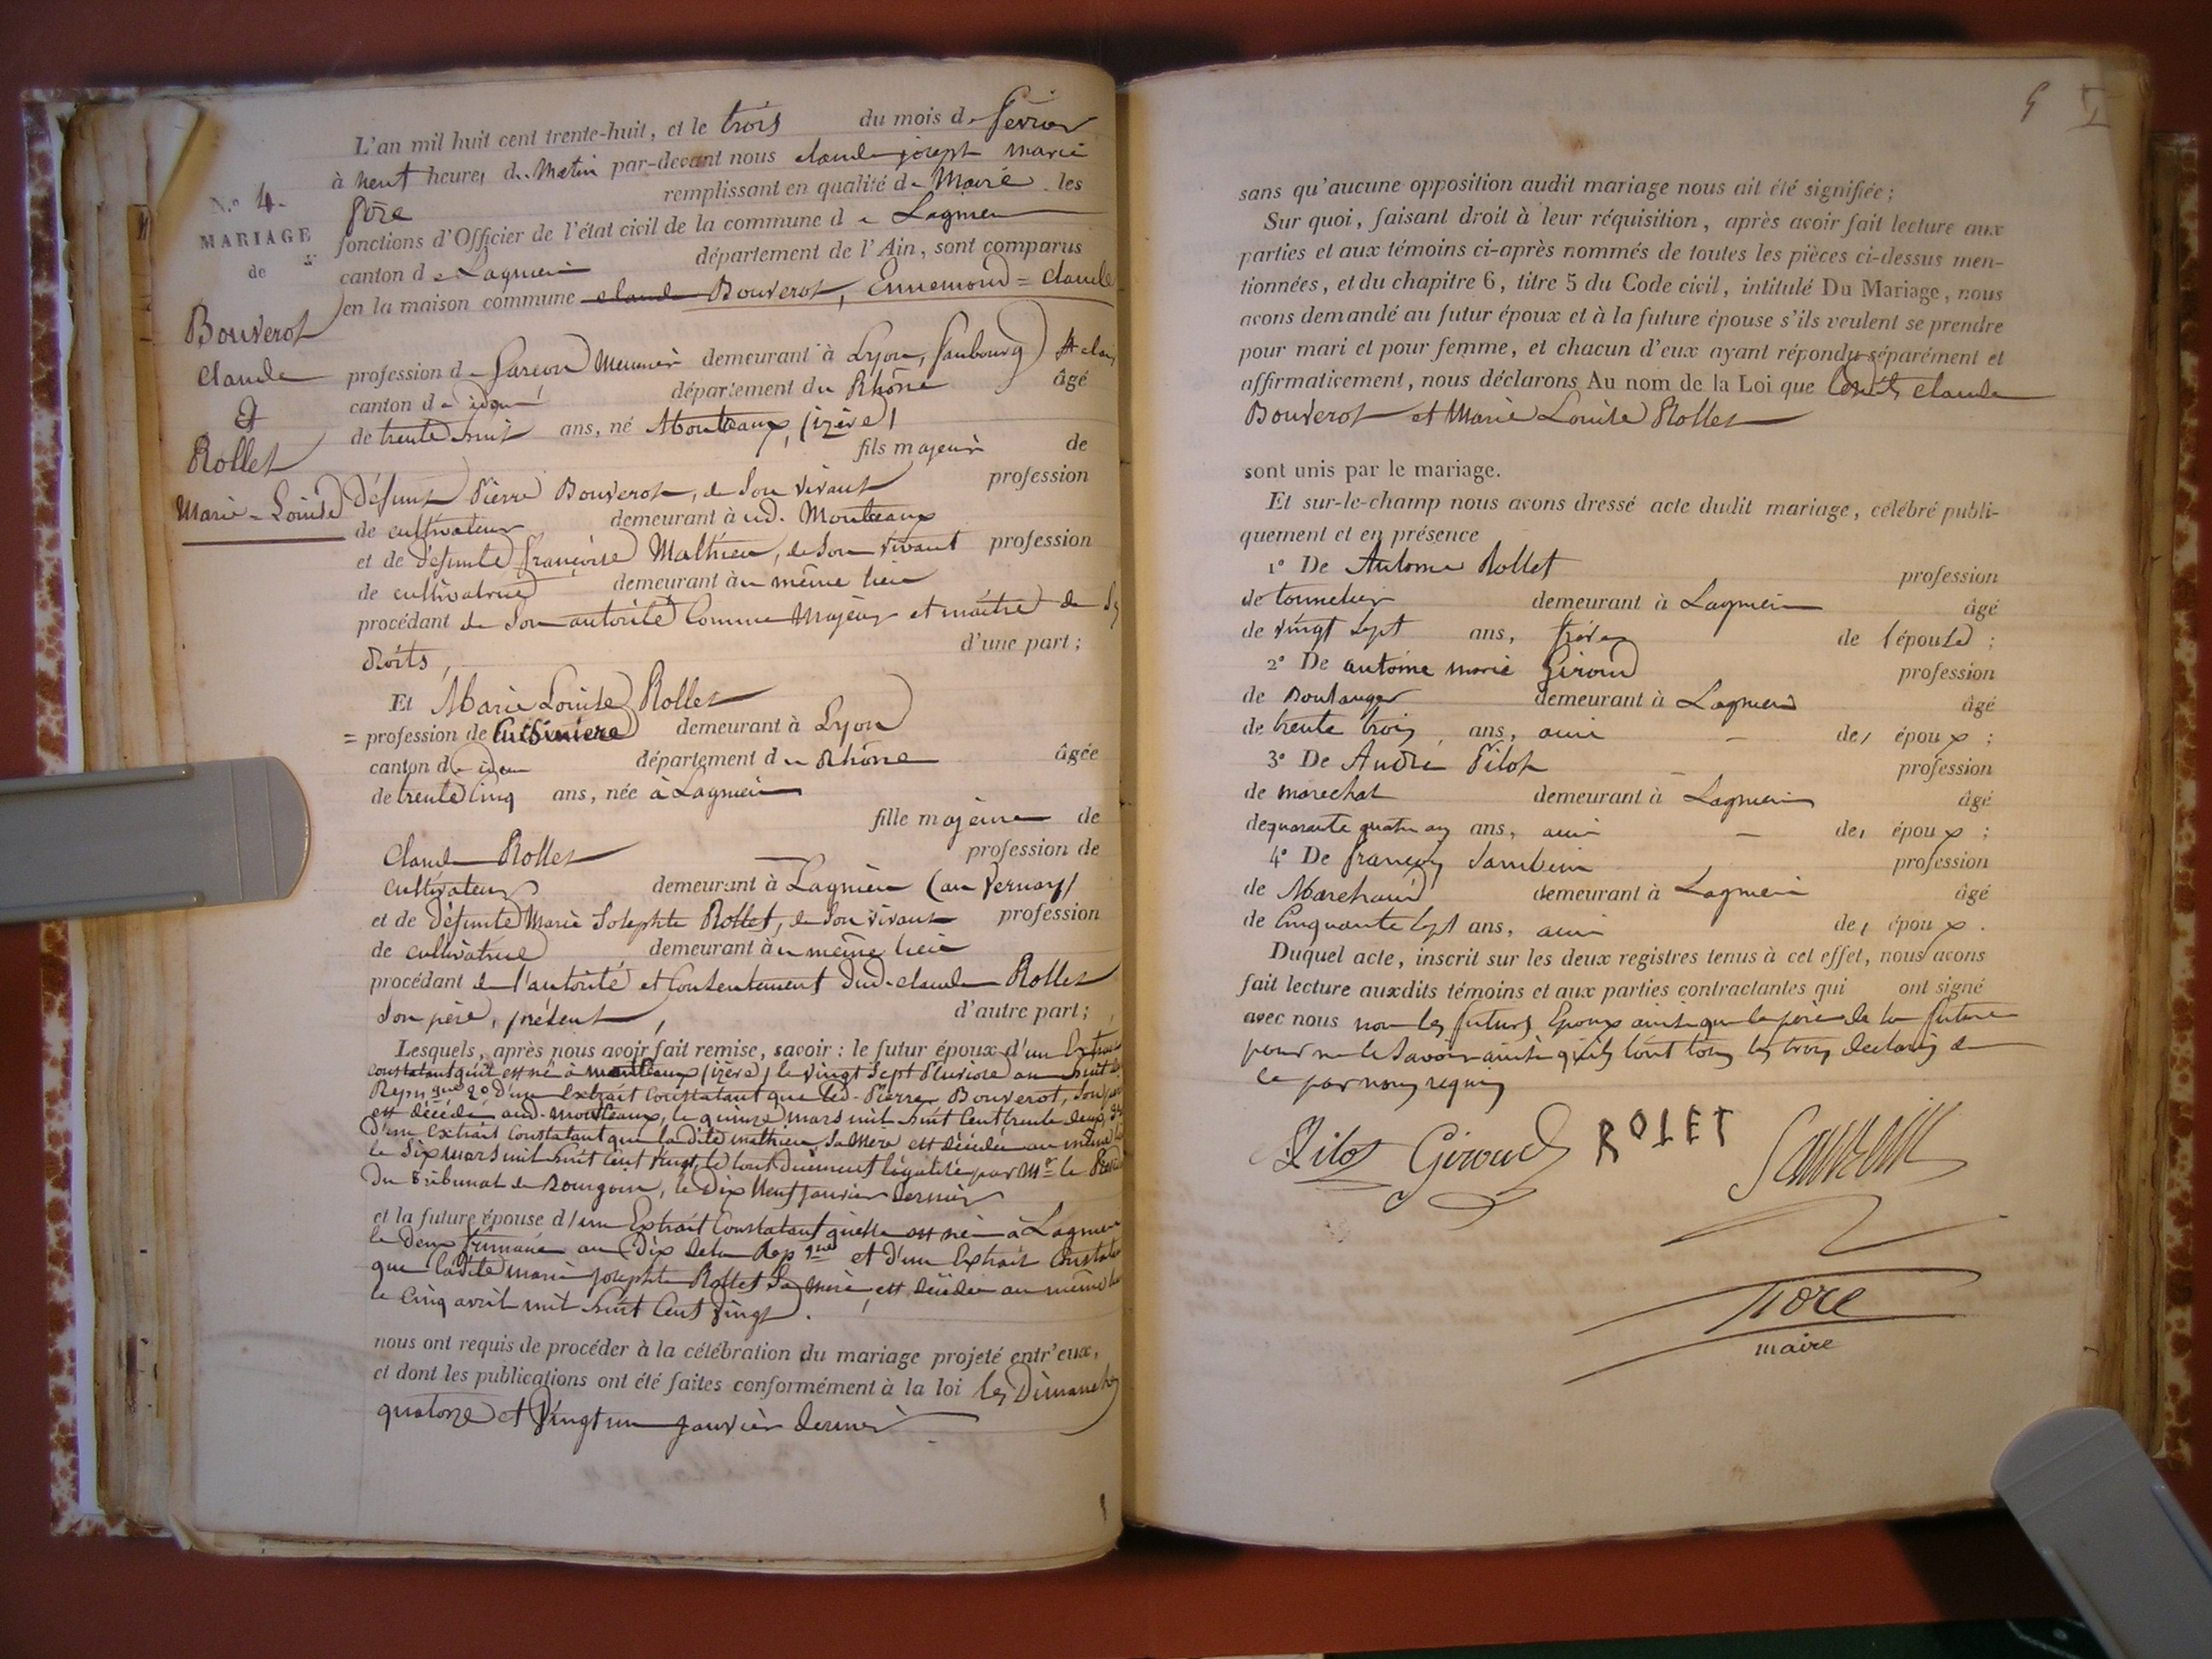 L'an mil huit cent trente-huit, et le trois du mois de février
à neuf heures du matin par-devant nous claude joseph marie
remplissant en qualité de Maire les
fonctions d'Officier de l'état civil de la commune de Lagnieu
canton de Lagnieu département de l'Ain, sont comparus
en la maison commune claude Bouverot, Ennemond = claude
N.º 4.
MARIAGE
de
Bouverot
Claude
et
Rollet
Marie-Louise
profession de garçon meunier demeurant à Lyon, faubourg St clair
canton de département du Rhône âgé
de trente huit ans, né (izère)
fils majeur de
défunt Pierre Bouverot, de son vivant profession
de cultivateur demeurant à ud.
et de défunte françoise Mathieu, de son vivant profession
de cultivatrice demeurant au même lieu
procédant de son autorité comme majeur et maître de
droits, d'une part;
Et Marie Louise Rollet
= profession de cuisiniere demeurant à Lyon
canton de idem département du Rhône âgée
de trente cinq ans, née à Lagnieu
fille majeure de
Claude Rollet profession de
cultivateur demeurant à Lagnieu (au Vernay)
et de défunte Marie Josephte Rollet, de son vivant profession
de cultivatrice demeurant au même lieu
procédant de l'autorité et consentement dud. claude Rollet
son père, présent, d'autre part;
Lesquels, après nous avoir fait remise, savoir : le futur époux d'un Extrait
constatant qu'il est né à (izère) le vingt sept Pluviose an huit
Repu.que 2º d'un Extrait constatant que led. Pierre Bouverot, son père
est décédé aud. le quinze mars mil huit cent trente deux,
d'un extrait constatant que ladite mathieu sa mere est décédée au même
le six mars mil huit cent vingt, le tout duement légalisé par Mr le
du tribunal de Bourgoin, le dix neuf janvier dernier
et la future épouse d'un Extrait constatant qu'elle est née à Lagnieu
le deux frimaire an dix de la Rep.que et d'un Extrait constatant
que ladite marie josephte Rollet sa mère, est décédée au même lieu
le cinq avril mil huit cent vingt.
nous ont requis de procéder à la célébration du mariage projeté entr'eux,
et dont les publications ont été faites conformément à la loi les Dimanches
quatorze et vingt un janvier dernier
sans qu'aucune opposition audit mariage nous ait été signifiée;
Sur quoi, faisant droit à leur réquisition, après avoir fait lecture aux
parties et aux témoins ci-après nommés de toutes les pièces ci-dessus men-
tionnées, et du chapitre 6, titre 5 du Code civil, intitulé Du Mariage, nous
avons demandé au futur époux et à la future épouse s'ils veulent se prendre
pour mari et pour femme, et chacun d'eux ayant répondu séparément et
affirmativement, nous déclarons Au nom de la Loi que lesdits claude
Bouverot et Marie Louise Rollet
sont unis par le mariage.
Et sur-le-champ nous avons dressé acte dudit mariage, célébré publi-
quement et en présence
1º De Antoine Rollet profession
de tonnelier demeurant à Lagnieu âgé
de vingt sept ans, frère de l'épouse;
2º De antoine marie Giroud profession
de Boulanger demeurant à Lagnieu âgé
de trente trois ans, ami des époux;
3º De André Pilot profession
de marechal demeurant à Lagnieu âgé
de quarante quatre ans, ami des époux;
4º De françois profession
de Marchand demeurant à Lagnieu âgé
de cinquante sept ans, ami des époux.
Duquel acte, inscrit sur les deux registres tenus à cet effet, nous avons
fait lecture auxdits témoins et aux parties contractantes qui ont signé
avec nous non les futurs Epoux ainsi que le père de la future
pour ne le savoir ainsi qu'ils l'ont tous les trois declaré de
ce par nous requis
Pilot Giroud ROLET
maire